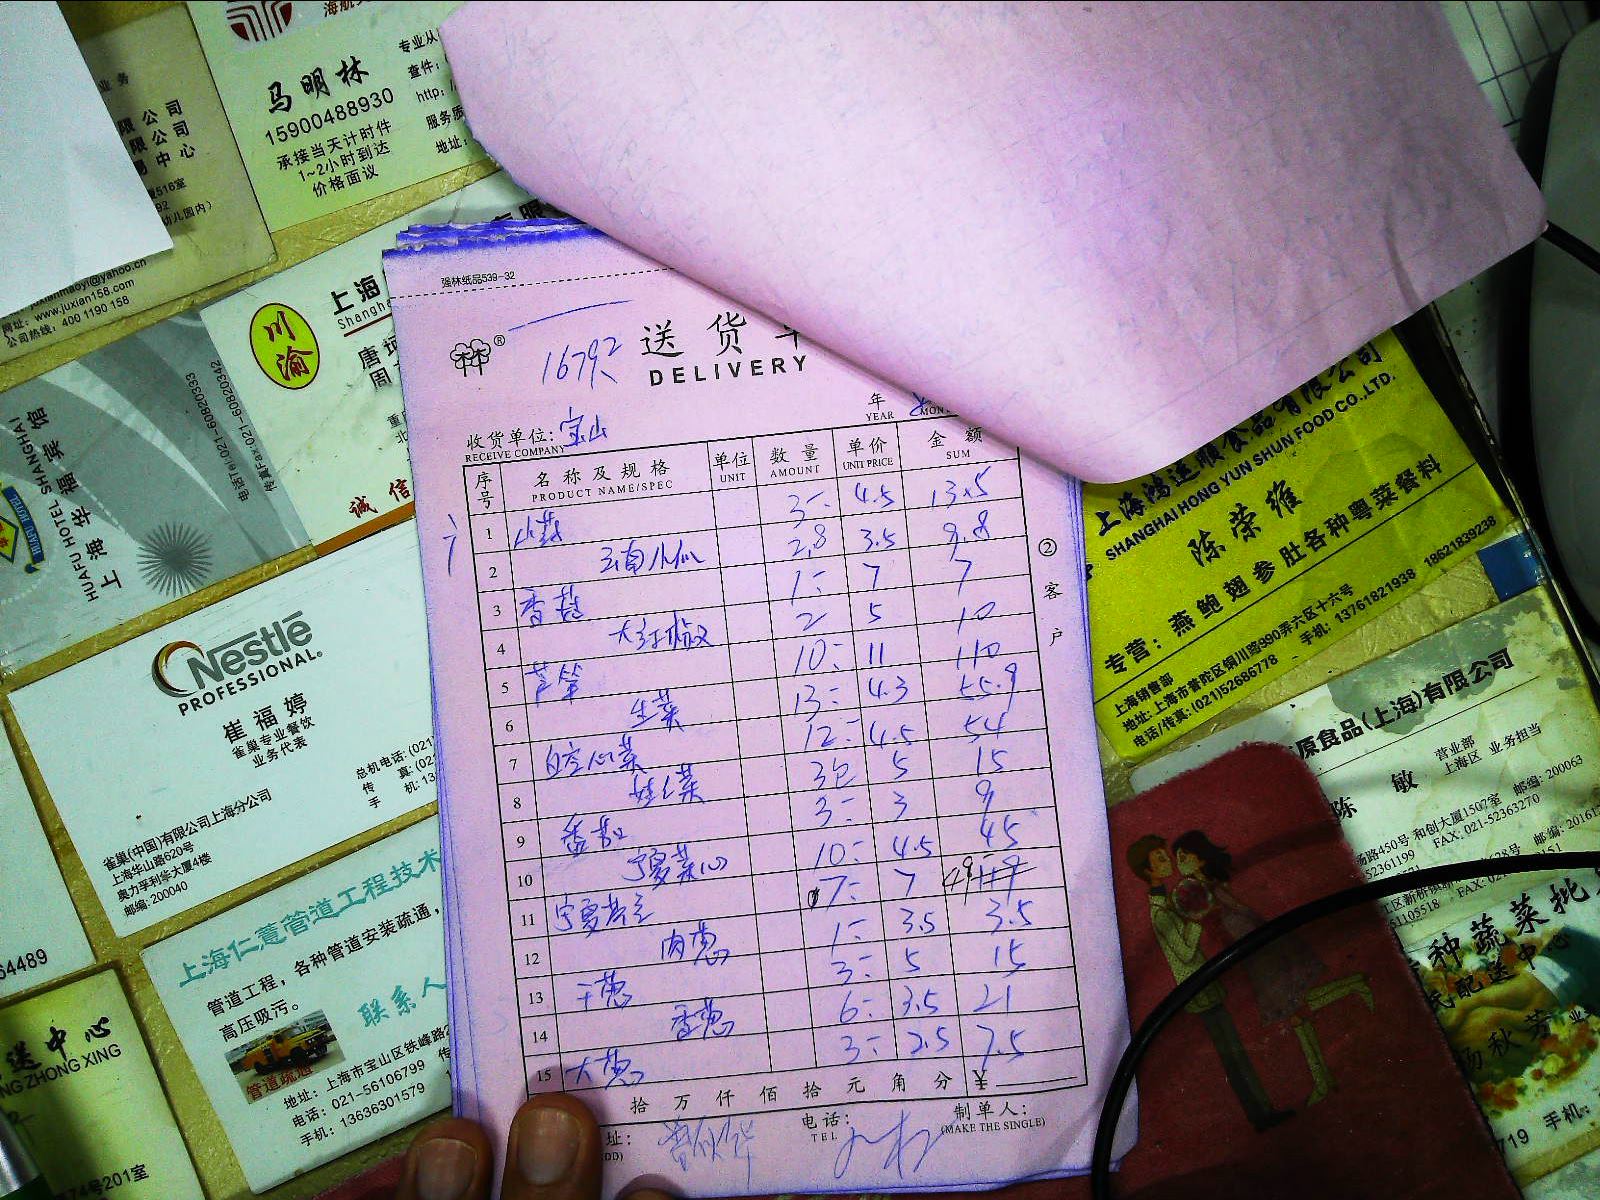 马明林
15900488930
承接当天计时件
1~2小时到达
价格面议
专业从
查件:
http:/
服务质
地址:
限公司
限公司
易中心
516室
幼儿园内)
juxianmaoyi@yahoo.cn
网址: www.juxian158.com
公司热线: 400 1190 158
川渝
上海
Shangha
诚信
HUAFU HOTEL SHANGHAI
上海华福宾馆
电话Tel:021-60820393
传真Fax:021-60820342
Nestlé
PROFESSIONAL®
崔福婷
雀巢专业餐饮
业务代表
总机电话: (021
传 真: (02
手 机: 13
雀巢(中国)有限公司上海分公司
上海华山路620号
奥力孚利华大厦4楼
邮编: 200040
上海仁薏管道工程技术
管道工程, 各种管道安装疏通,
高压吸污。
联系人
管道疏通
地址: 上海市宝山区铁峰路2
电话: 021-56106799 传
手机: 13636301579
64489
送中心
NG ZHONG XING
201室
强林纸品539-32
林®
16792
送货单
DELIVERY
年
YEAR
收货单位: 宝山
RECEIVE COMPANY
序号 名称及规格 单位 数量 单价 金额
PRODUCT NAME/SPEC UNIT AMOUNT UNIT PRICE SUM
1 小葱 3- 4.5 13.5
2 云南小瓜 2.8 3.5 9.8
3 香菇 1- 7 7
4 大红椒 2 5 10
5 芦笋 10- 11 110
6 生菜 13- 4.3 55.9
7 白空心菜 12- 4.5 54
8 娃娃菜 3包 5 15
9 番茄 3- 3 9
10 宁夏菜心 10- 4.5 45
11 宁夏 7- 7 49
12 肉葱 1- 3.5 3.5
13 干葱 3- 5 15
14 香葱 6- 3.5 21
15 大葱 3- 2.5 7.5
拾万仟佰拾元角分 ¥
址:
电话:
TEL
制单人:
(MAKE THE SINGLE)
②客户
上海鸿运顺食品有限公司
SHANGHAI HONG YUN SHUN FOOD CO.,LTD.
陈荣维
专营: 燕鲍翅参肚各种粤菜餐料
上海销售部
地址: 上海市普陀区铜川路990弄六区十六号
电话/传真: (021)52686778 手机: 13761821938 18621839238
原食品(上海)有限公司
陈敏
营业部
上海区 业务担当
场路450号 和创大厦1507室 邮编: 200063
52361199 FAX: 021-52363270
61105518
种蔬菜批
配送中心
杨秋芳
手机:
719